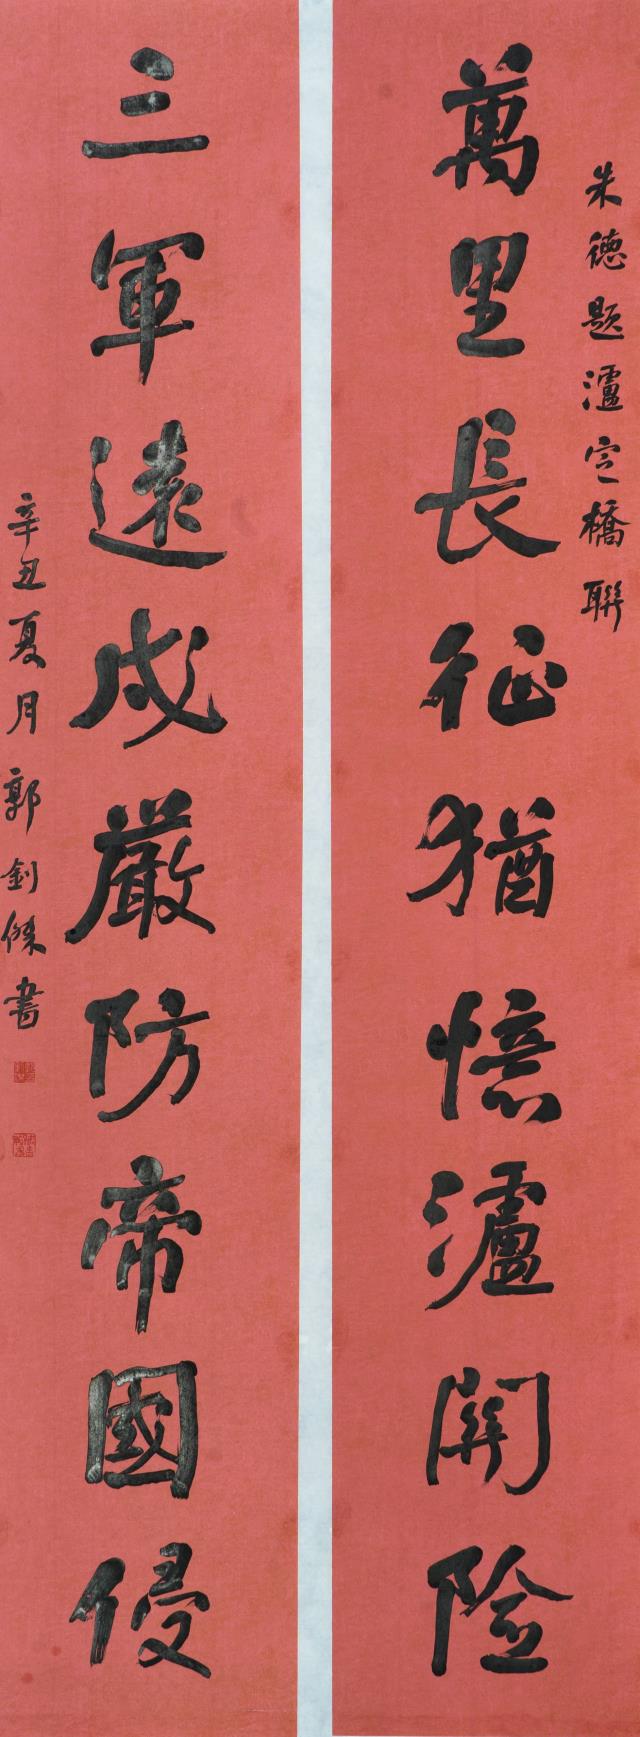 朱德題瀘定橋聯
萬里長征猶憶瀘關險
三軍遠戍嚴防帝國侵
辛丑夏月郭劍傑書